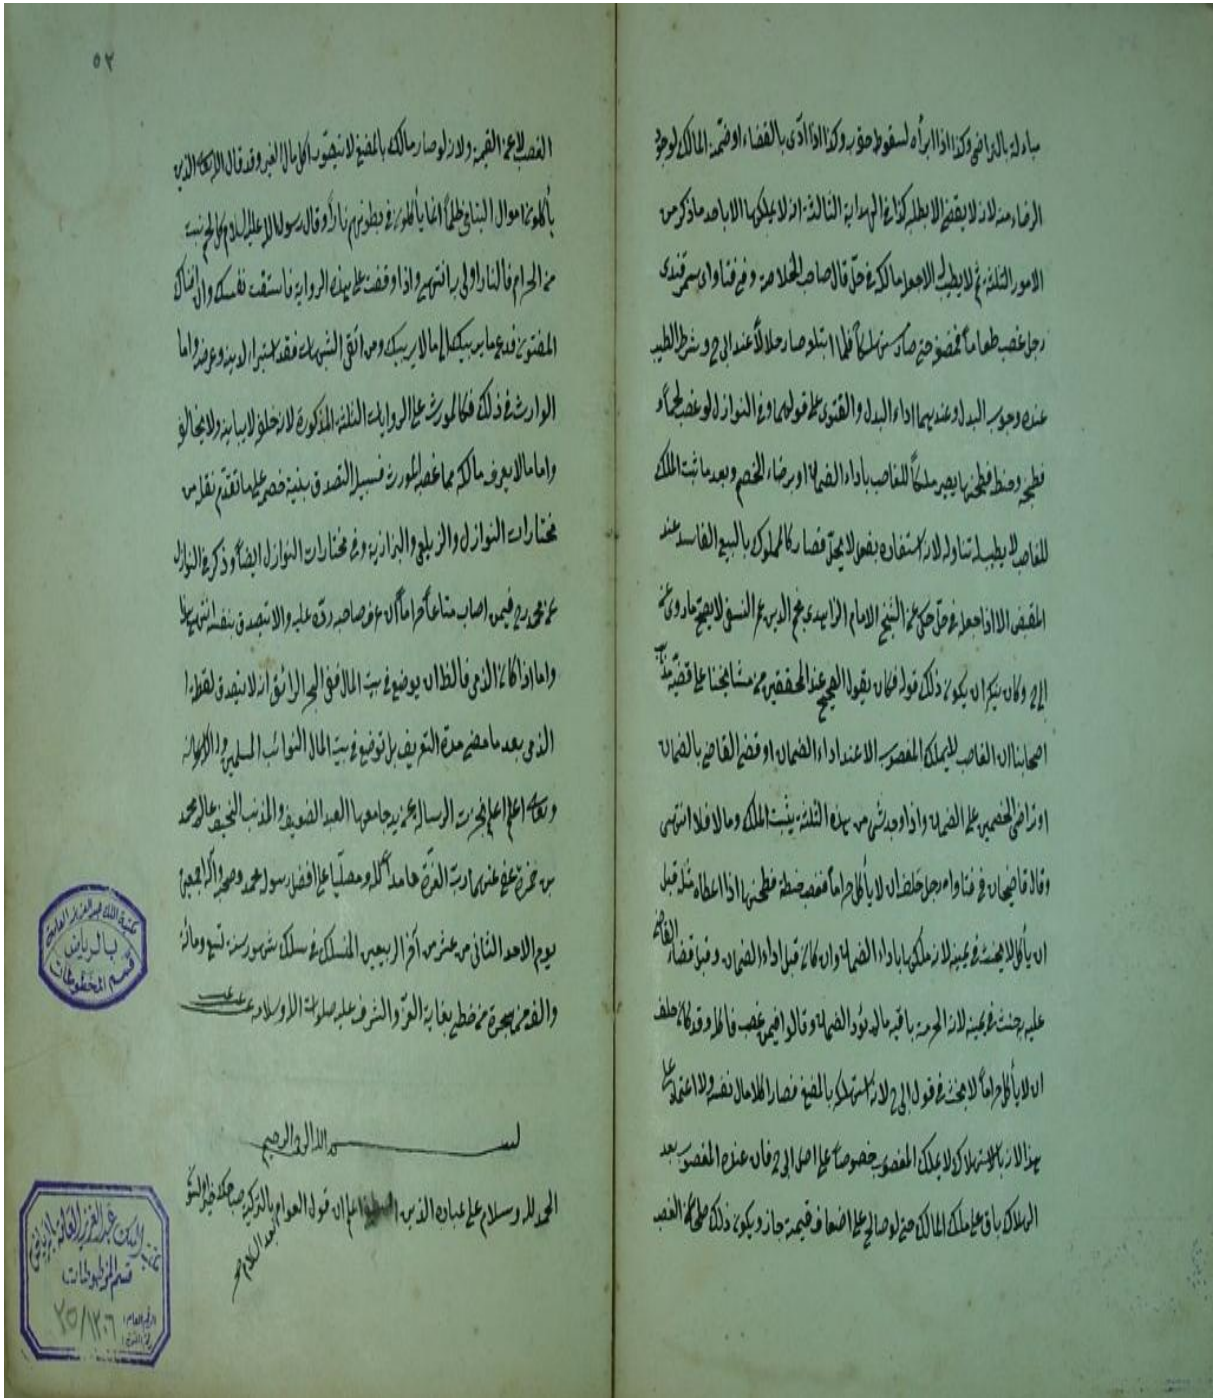 مبادلة بالتراضي وكذا اذا ابرأه لسقوط حقه وكذا اذا ادّى بالقضاء او ضمنه المالك لوجود
الرضاء منه لانه لا يقضي الا بطلبه كذا في الهداية الثالثة انه لا يملكها الا باحد ما ذكر من
الامور الثلثة ثم لا يطيب الا بجعل مالكه في حلّ قال صاحب الخلاصة وفي فتاوى سمرقندى
رجل غصب طعاماً فمضغه حتى صار مستهلكاً فلما ابتلعه صار حلالاً عند ابي ح وشرط الطيب
عنده وجوب البدل وعندهما اداء البدل والفتوى على قولهما وفي النوازل لو غصب لحماً و
فطبخه وحنطة فطحنها يصير ملكاً للغاصب باداء الضمان او برضاء الخصم وبعد ما ثبت الملك
للغاصب لا يطيب له تناوله لانه استفاده بفعل لا يحلّ فصار كالمملوك بالبيع الفاسد عند
القبض الا اذا جعله في حلّ حكى عن الشيخ الامام الزاهدى نجم الدين عمر النسفى لا يصح ما روى عن
ابي ح وكان ينكر ان يكون ذلك قوله فكان يقول الصحيح عند المحققين من مشايخنا على قضية مذهب
اصحابنا ان الغاصب لا يملك المغصوب الا عند اداء الضمان او قضى القاضي بالضمان
او تراضى الخصمين على الضمان واذا وجد شئ من هذه الثلثة يثبت الملك وما لا فلا انتهى
وقال قاضيخان في فتاواه رجل حلف ان لا يأكل حراماً فغصب حنطة فطحنها اذا اعطاه مثله قبل
ان يأكل لا يحنث في يمينه لانه ملكها باداء الضمان وان كان قبل اداء الضمان وقبل قضاء القاضي
عليه يحنث في يمينه لان الحرمة باقية ما لم يؤد الضمان وقالوا فيمن غصب فاكله وقد كان حلف
ان لا يأكل حراماً لا يحنث في قول ابي ح لانه استهلكه بالمضغ فصار اكلا مال نفسه ولا اعتماد على
هذا لان بالاستهلاك لا يملك المغصوب خصوصاً على اصل ابي ح فان عنده المغصوب بعد
الهلاك باق على ملك المالك حتى لو صالح على اضعاف قيمته جاز ويكون ذلك صلحا عن الغصب
٥٢
الغصب لا عن القيمة ولانه لو صار مالكه بالمضغ لا يتصور اكل مال الغير وقد قال الله تعالى الذين
يأكلون اموال اليتامى ظلماً انما يأكلون في بطونهم ناراً وقال رسول الله عليه السلام كل لحم نبت
من الحرام فالنار اولى به انتهى واذا وقفت على هذه الرواية فاستفت نفسك وان افتاك
المفتون فدع ما يريبك الى ما لا يريبك ومن اتقى الشبهات فقد استبرأ لدينه وعرضه واما
الوارث في ذلك فكالمورث على الروايات الثلثة المذكورة لانه خلفه لا يباينه ولا يخالفه
واما ما لا يعرف مالكه مما غصبه المورث فسبيله التصدق بنية خصمه على ما تقدم نقله من
مختارات النوازل والزيلعى والبزازية وفي مختارات النوازل ايضاً وذكر في النوازل
عن محمد رح فيمن اصاب متاعاً حراماً ان عرف صاحبه ردّه عليه والا تصدق بنفسه انتهى هذا
واما اذا كان الذمى فالظ ان يوضع في بيت المال ففى البحر الرائق انه لا يتصدق لقطة
الذمى بعد ما مضى مدة التعريف بل توضع في بيت المال لنوائب المسلمين والله سبحانه
وتعالى اعلم اعلم نجزت الرسالة بحمد يد جامعها العبد الضعيف والمذنب النحيف عالم محمد
بن حمزة عفى عنهما ربّ العزّة حامداً لله ومصلّيا على افضل رسوله محمد وصحبه وآله اجمعين
يوم الاحد الثانى من عشر من آخر الربيعين المنسلك في سلك شهور سنة تسع ومائة
والف من هجرة من خصّ بغاية العز والشرف عليه صلوات الله وسلامه
بسم الله الرحمن الرحيم
الحمد لله وسلام على عباده الذين اصطفى اعلم ان قول العوام بالتركية
مكتبة الملك عبد العزيز العامة
بالرياض
قسم المخطوطات
مكتبة الملك عبد العزيز العامة بالرياض
قسم المخطوطات
الرقم العام:
٢٥/١٢٠٦